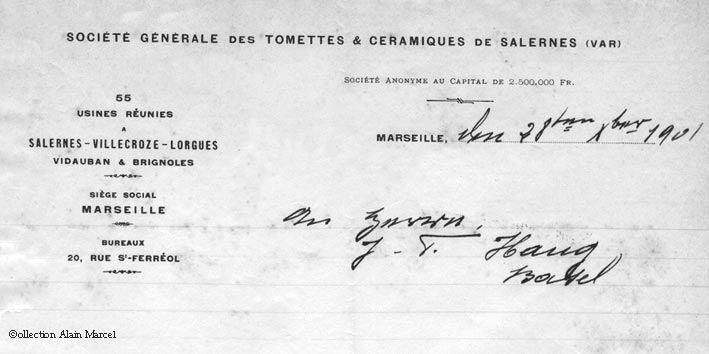 SOCIÉTÉ GÉNÉRALE DES TOMETTES & CERAMIQUES DE SALERNES (VAR)
SOCIÉTÉ ANONYME AU CAPITAL DE 2.500,000 FR.
55
USINES RÉUNIES
A
SALERNES-VILLECROZE-LORGUES
VIDAUBAN & BRIGNOLES
SIÈGE SOCIAL
MARSEILLE
BUREAUX
20, RUE ST-FERRÉOL
MARSEILLE, den 28ten Xber 1901
An Herrn
J. T. Haug
Basel
©ollection Alain Marcel